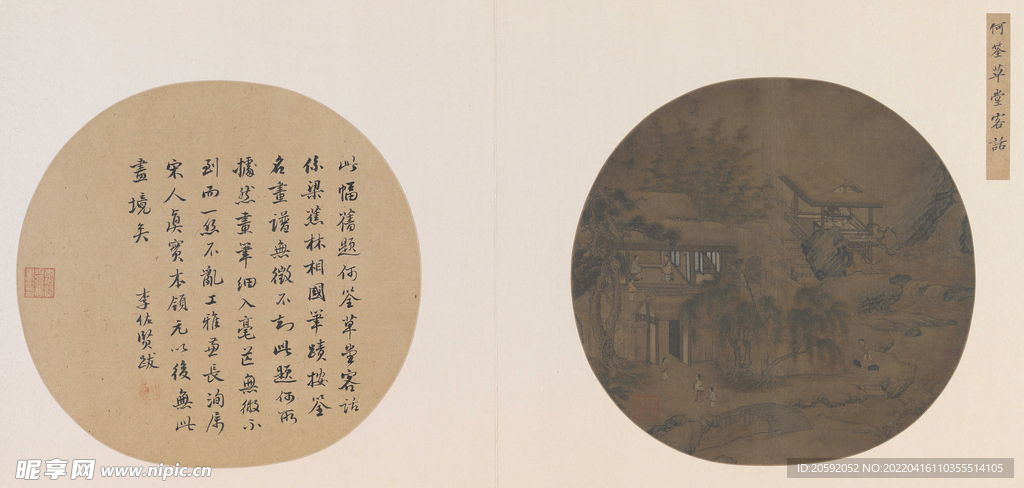 何荃草堂客話
此幅舊題何荃草堂客話
係梁蕉林相國筆蹟按荃
名畫譜無徵不知此題何所
據然畫筆細入毫芒無微不
到而一絲不亂工雅兼長洵屬
宋人真實本領元以後無此
畫境矣
李佐賢跋
昵享网 www.nipic.cn
ID:20592052 NO:20220416110355514105